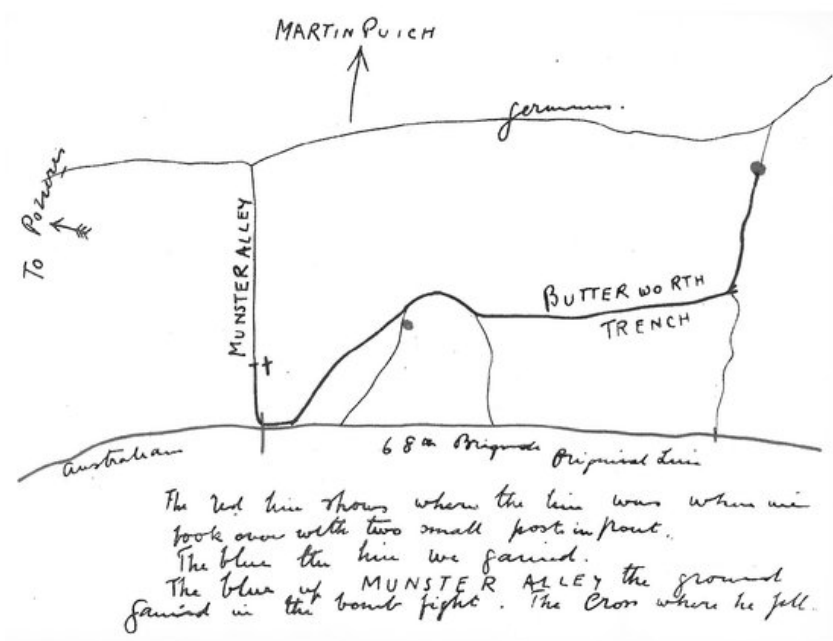 MARTINPUICH
Germans.
To Pozieres
MUNSTER ALLEY
BUTTERWORTH
TRENCH
Australians
68th Brigade
Original Line
The red line shows where the line was when we
took over with two small posts in front.
The blue the line we gained.
The blue up MUNSTER ALLEY the ground
gained in the bomb fight. The Cross where he fell.